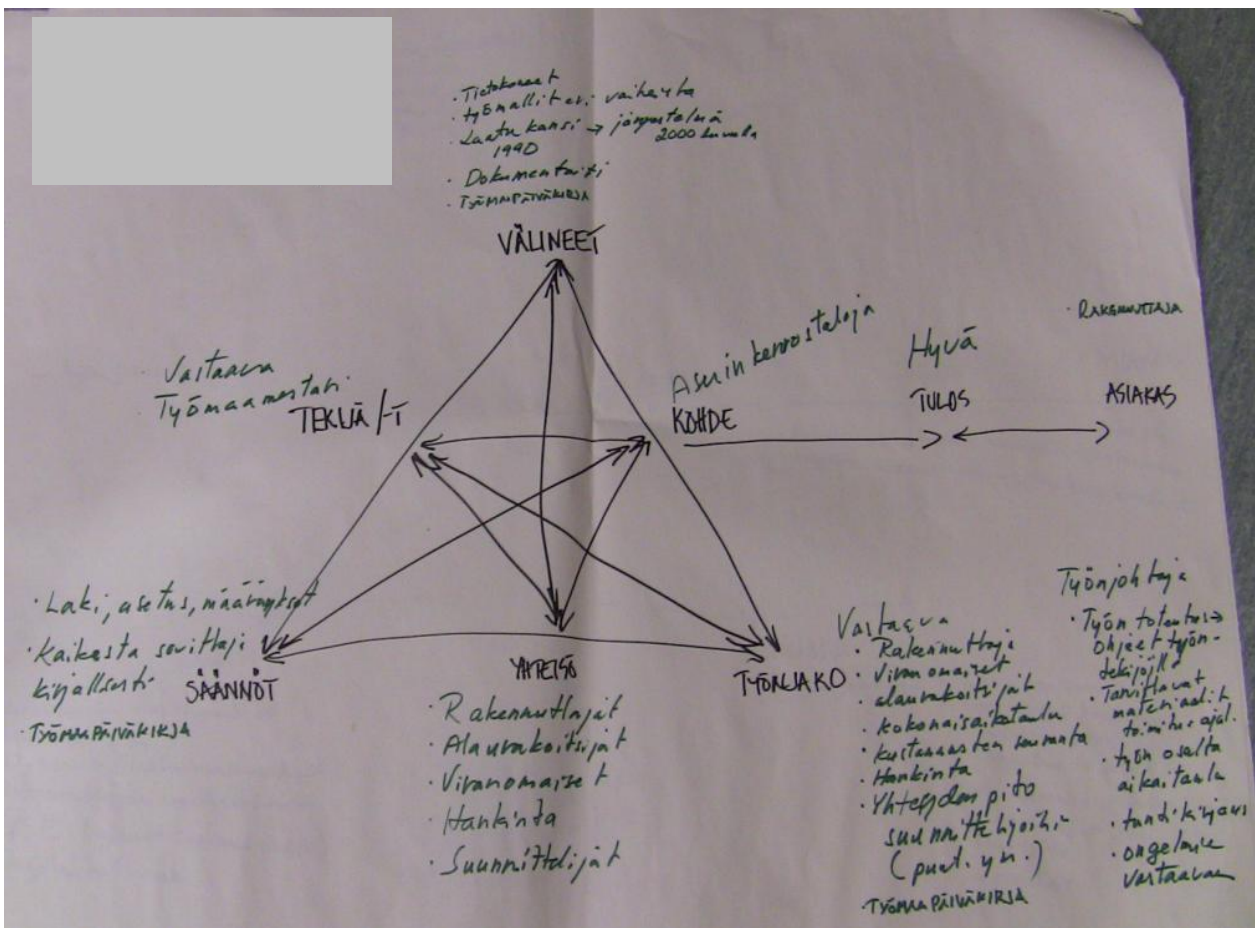 · Tietokoneet
· työmallit eri vaiheista
· Laatukansi → järjestelmä
1990 2000 luvulla
· Dokumentointi
· TYÖMAAPÄIVÄKIRJA
VÄLINEET
Vastaava
Työmaamestari
TEKIJÄ /-T
Asuinkerrostaloja
KOHDE
Hyvä
TULOS
· RAKENNUTTAJA
ASIAKAS
· Laki, asetus, määräykset
· Kaikesta sovittaji
kirjallisesti
SÄÄNNÖT
· TYÖMAAPÄIVÄKIRJA
YHTEISÖ
· Rakennuttajat
· Alaurakoitsijat
· Viranomaiset
· Hankinta
· Suunnittelijat
TYÖNJAKO
Vastaava
· Rakennuttaja
· Viranomaiset
· alaurakoitsijat
· kokonaisaikataulu
· kustannusten seuranta
· Hankinta
· Yhteydenpito
suunnittelijoihin
(puut. ym.)
· TYÖMAAPÄIVÄKIRJA
Työnjohtaja
· Työn toteutus →
ohjeet työn-
tekijöille
· Tarvittavat
materiaalit
toimitusajat.
· työn osalta
aikataulu
· tuntikirjaus
· ongelmia
vastaavan